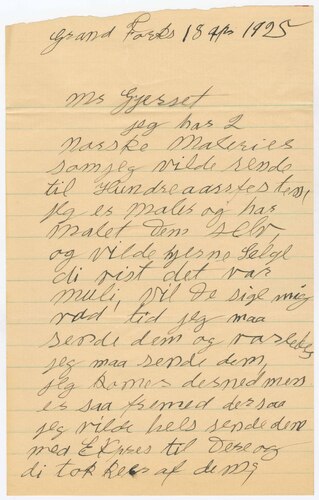 Grand Forks 18 apr 1925
Mr Gjerset
jeg har 2
norske Maleries
som jeg vilde sende
til Hundreaarsfesten
jeg er Maler og har
Malet Dem selv
og vilde gjerne Selge
di vist det var
muli, vil De sige mig
vad tid jeg maa
sende dem og
jeg maa sende dem,
jeg komer des ned men
er saa fremed der saa
jeg vilde hels sende dem
med EXpres til Dere og
di tok af dem